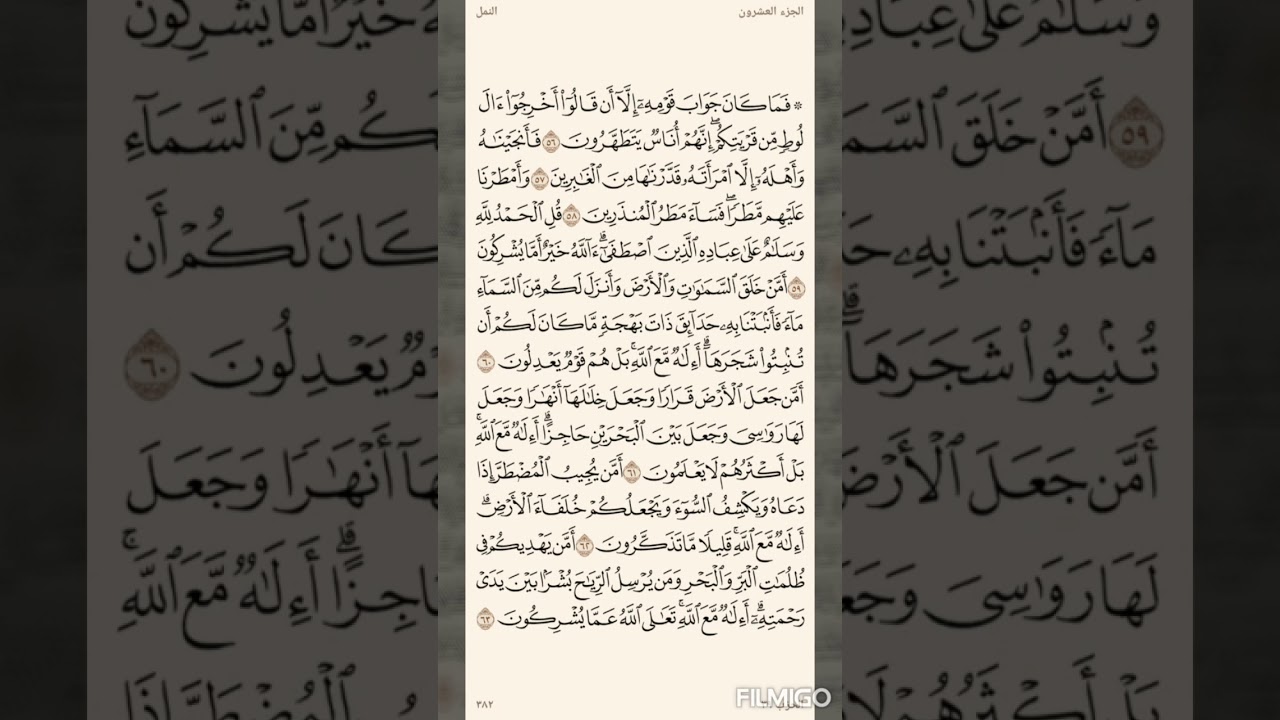 الجزء العشرون
النمل
۞ فَمَا كَانَ جَوَابَ قَوْمِهِۦٓ إِلَّآ أَن قَالُوٓا۟ أَخْرِجُوٓا۟ ءَالَ
لُوطٍ مِّن قَرْيَتِكُمْ ۖ إِنَّهُمْ أُنَاسٌ يَتَطَهَّرُونَ ٥٦ فَأَنجَيْنَٰهُ
وَأَهْلَهُۥٓ إِلَّا ٱمْرَأَتَهُۥ قَدَّرْنَٰهَا مِنَ ٱلْغَٰبِرِينَ ٥٧ وَأَمْطَرْنَا
عَلَيْهِم مَّطَرًا ۖ فَسَآءَ مَطَرُ ٱلْمُنذَرِينَ ٥٨ قُلِ ٱلْحَمْدُ لِلَّهِ
وَسَلَٰمٌ عَلَىٰ عِبَادِهِ ٱلَّذِينَ ٱصْطَفَىٰٓ ۗ ءَآللَّهُ خَيْرٌ أَمَّا يُشْرِكُونَ
٥٩ أَمَّنْ خَلَقَ ٱلسَّمَٰوَٰتِ وَٱلْأَرْضَ وَأَنزَلَ لَكُم مِّنَ ٱلسَّمَآءِ
مَآءً فَأَنۢبَتْنَا بِهِۦ حَدَآئِقَ ذَاتَ بَهْجَةٍ مَّا كَانَ لَكُمْ أَن
تُنۢبِتُوا۟ شَجَرَهَآ ۗ أَءِلَٰهٌ مَّعَ ٱللَّهِ ۚ بَلْ هُمْ قَوْمٌ يَعْدِلُونَ ٦٠
أَمَّن جَعَلَ ٱلْأَرْضَ قَرَارًا وَجَعَلَ خِلَٰلَهَآ أَنْهَٰرًا وَجَعَلَ
لَهَا رَوَٰسِىَ وَجَعَلَ بَيْنَ ٱلْبَحْرَيْنِ حَاجِزًا ۗ أَءِلَٰهٌ مَّعَ ٱللَّهِ ۚ
بَلْ أَكْثَرُهُمْ لَا يَعْلَمُونَ ٦١ أَمَّن يُجِيبُ ٱلْمُضْطَرَّ إِذَا
دَعَاهُ وَيَكْشِفُ ٱلسُّوٓءَ وَيَجْعَلُكُمْ خُلَفَآءَ ٱلْأَرْضِ ۗ
أَءِلَٰهٌ مَّعَ ٱللَّهِ ۚ قَلِيلًا مَّا تَذَكَّرُونَ ٦٢ أَمَّن يَهْدِيكُمْ فِى
ظُلُمَٰتِ ٱلْبَرِّ وَٱلْبَحْرِ وَمَن يُرْسِلُ ٱلرِّيَٰحَ بُشْرًۢا بَيْنَ يَدَىْ
رَحْمَتِهِۦٓ ۗ أَءِلَٰهٌ مَّعَ ٱللَّهِ ۚ تَعَٰلَى ٱللَّهُ عَمَّا يُشْرِكُونَ ٦٣
٣٨٢
FILMIGO